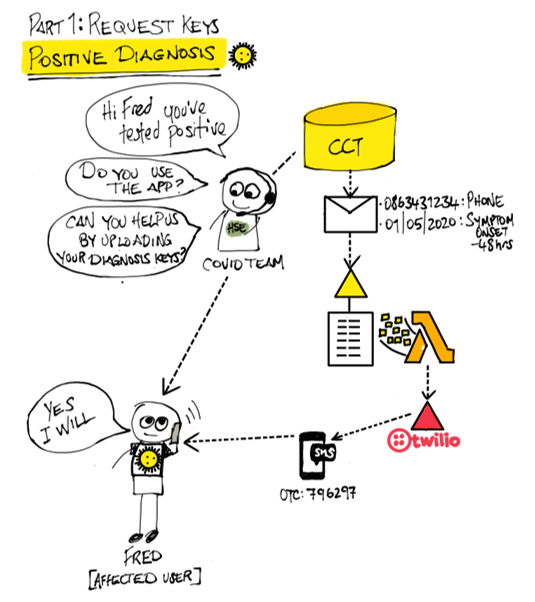 PART 1: REQUEST KEYS
POSITIVE DIAGNOSIS
Hi Fred you've
tested positive
DO YOU USE
THE APP?
CAN YOU HELP US
BY UPLOADING
YOUR DIAGNOSIS KEYS?
HSE
COVID TEAM
CCT
· 0863431234 : PHONE
· 01/05/2020 : SYMPTOM
ONSET
-48hrs
twilio
SMS
OTC: 796297
YES
I WILL
FRED
[AFFECTED USER]